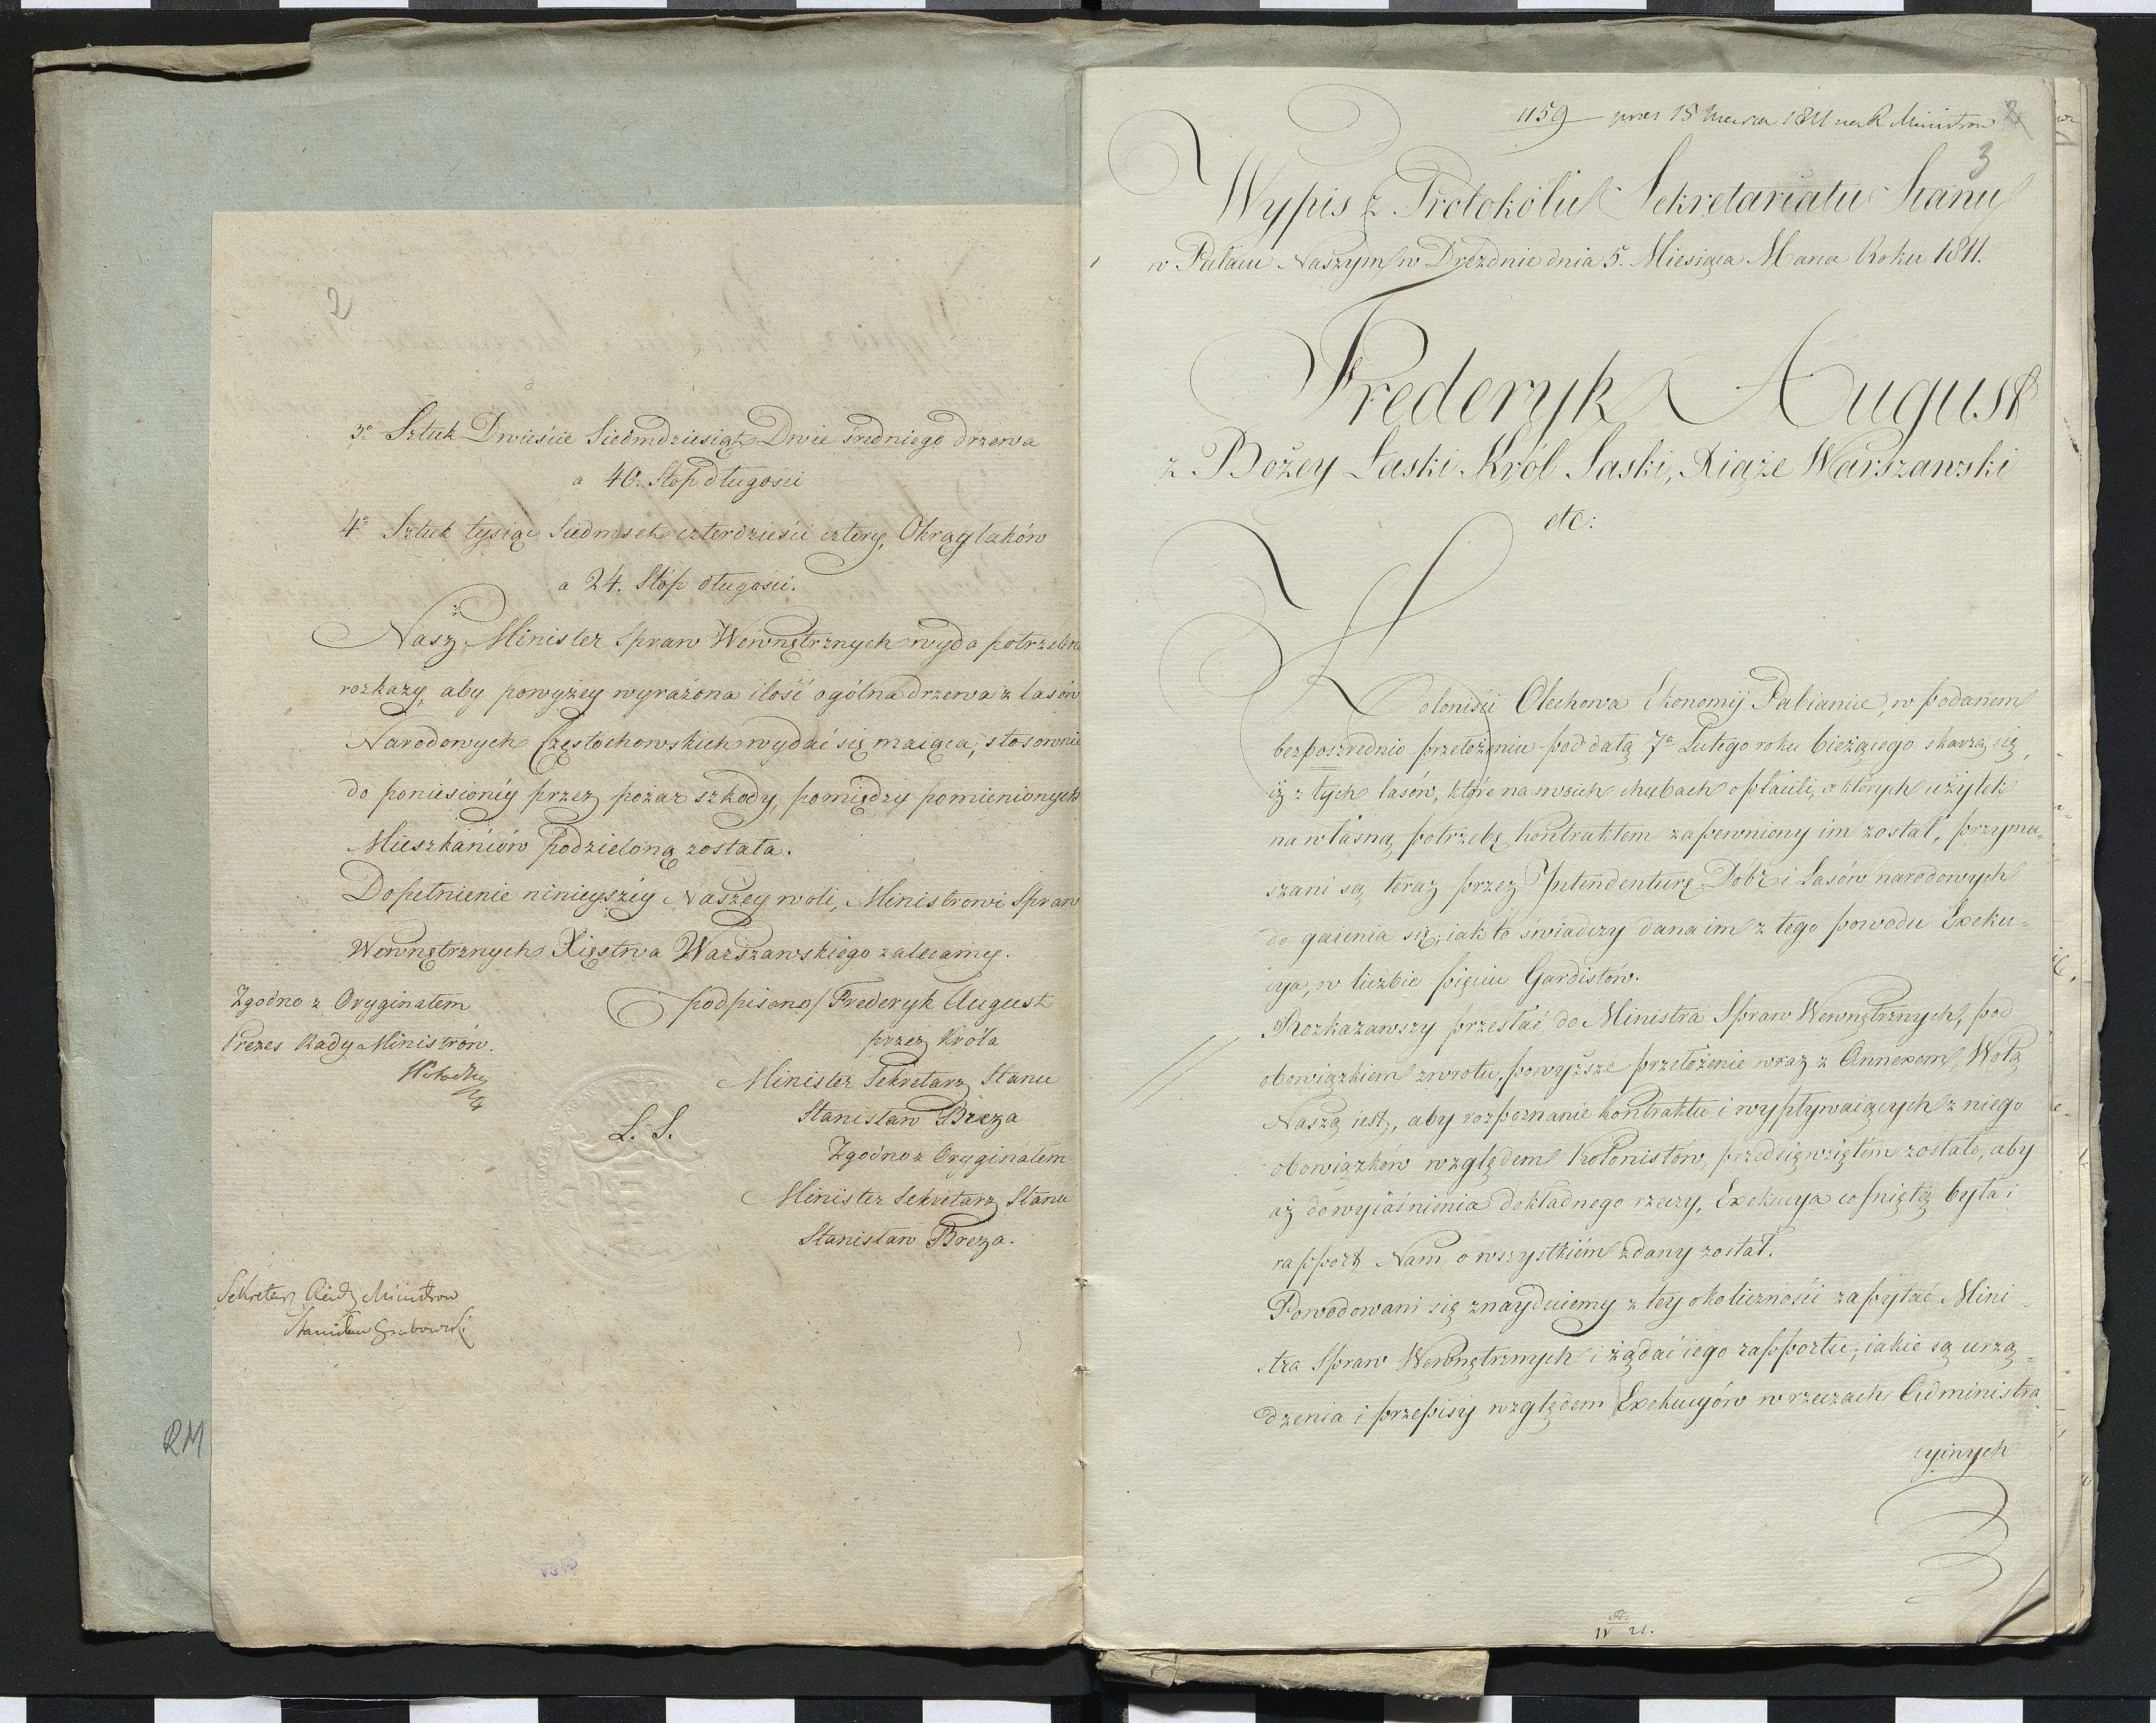 2
3o Sztuk Dwieście Siedmdziesiąt Dwie średniego drzewa
a 40. Stop długości
4o Sztuk tysiąc Siedmset czterdzieści cztery, Okrąglaków
a 24. Stóp długości.
Nasz Minister Spraw Wewnętrznych wyda potrzebne
rozkazy, aby powyżey wyrażona ilość ogólna drzewa z lasów
Narodowych Częstochowskich wydać się maiąca, stosownie
do poniesionéy przez pożar szkody, pomiędzy pomienionych
Mieszkańców podzieloną została.
Dopełnienie ninieyszéy Naszey woli, Ministrowi Spraw
Wewnętrznych Xięstwa Warszawskiego zalecamy.
Zgodno z Oryginałem
Prezes Rady Ministrów.
podpisano/ Frederyk August
przez Króla
Minister Sekretarz Stanu
Stanisław Breza
L. S.
Zgodno z Oryginałem
Minister Sekretarz Stanu
Stanisław Breza.
Sekretarz Rady Ministrow
Stanisław Grabowski
RM
1159 pres 15 Marca 1811 na R Ministrow
2
3
Wypis z Protokólu Sekretariatu Stanu
w Pałacu Naszym w Dreźdnie dnia 5. Miesiąca Marca Roku 1811.
Frederyk August
z Bożey Łaski Król Saski, Xiąże Warszawski
etc:
Koloniści Olechowa Ekonomij Pabianice, w podanem
bezposzrednio przełożeniu pod datą 7a Lutego roku bieżącego skarżą się,
iż z tych lasów, które na swoich chębach opłacili, a których użytek
na własną potrzebę kontraktem zapewniony im został, przymu=
szani są teraz przez Intendenturę Dóbr i Lasów narodowych
do gaienia się; iak to świadczy dana im z tego powodu Exeku=
cya, w liczbie pięciu Gardistów.
Rozkazawszy przesłać do Ministra Spraw Wewnętrznych, pod
obowiązkiem zwrotu, powyższe przełożenie wraz z Annexem, Wolą
Naszą iest, aby rozpoznanie kontraktu i wypływaiących z niego
obowiązków względem Kolonistów, przedsięwziętem zostało, aby
aż do wyiaśnienia dokładnego rzeczy, Exekucya cofniętą była i
rapport Nam o wszystkiém zdany został.
Powodowani się znayduiemy z tey okoliczności zapytać Mini
stra Spraw Wewnętrznych i żądać iego rapportu, iakie są urzą=
dzenia i przepisy względem Exekucyów w rzeczach Administra
cyinych